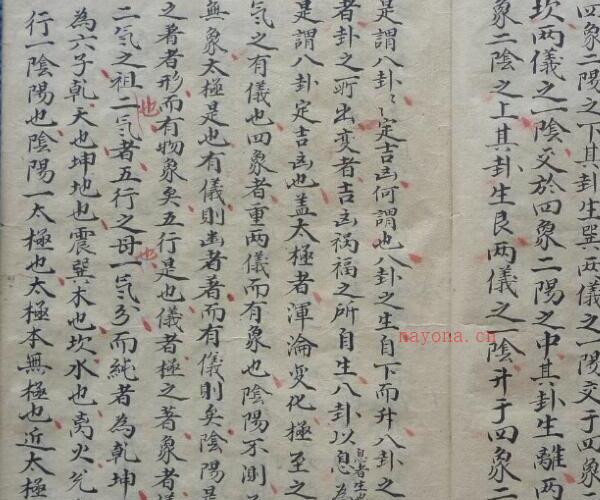 四象二陽之下其卦生巽兩儀之一陽交于四象二
坎兩儀之一陰交於四象二陽之中其卦生離兩
象二陰之上其卦生艮兩儀之一陰升于四象二
是謂八卦〻定吉凶何謂也八卦之生自下而升八卦之
者卦之所出变者吉凶祸福之所自生八卦以息為
息者生也
是謂八卦定吉凶也盖太極者渾淪变化極至之
氣之有儀也四象者重兩儀而有象也陰陽不測
無象太極是也有儀則幽者著而有儀則矣陰陽是
之著者形而有物象矣五行是也儀者極之著象者儀
二氣之祖二氣者五行之母一氣分而純者為乾坤
也
也
為六子乾天也坤地也震巽木也坎水也离火兊
行一陰陽也陰陽一太極也太極本無極也近太極
nayona.cn